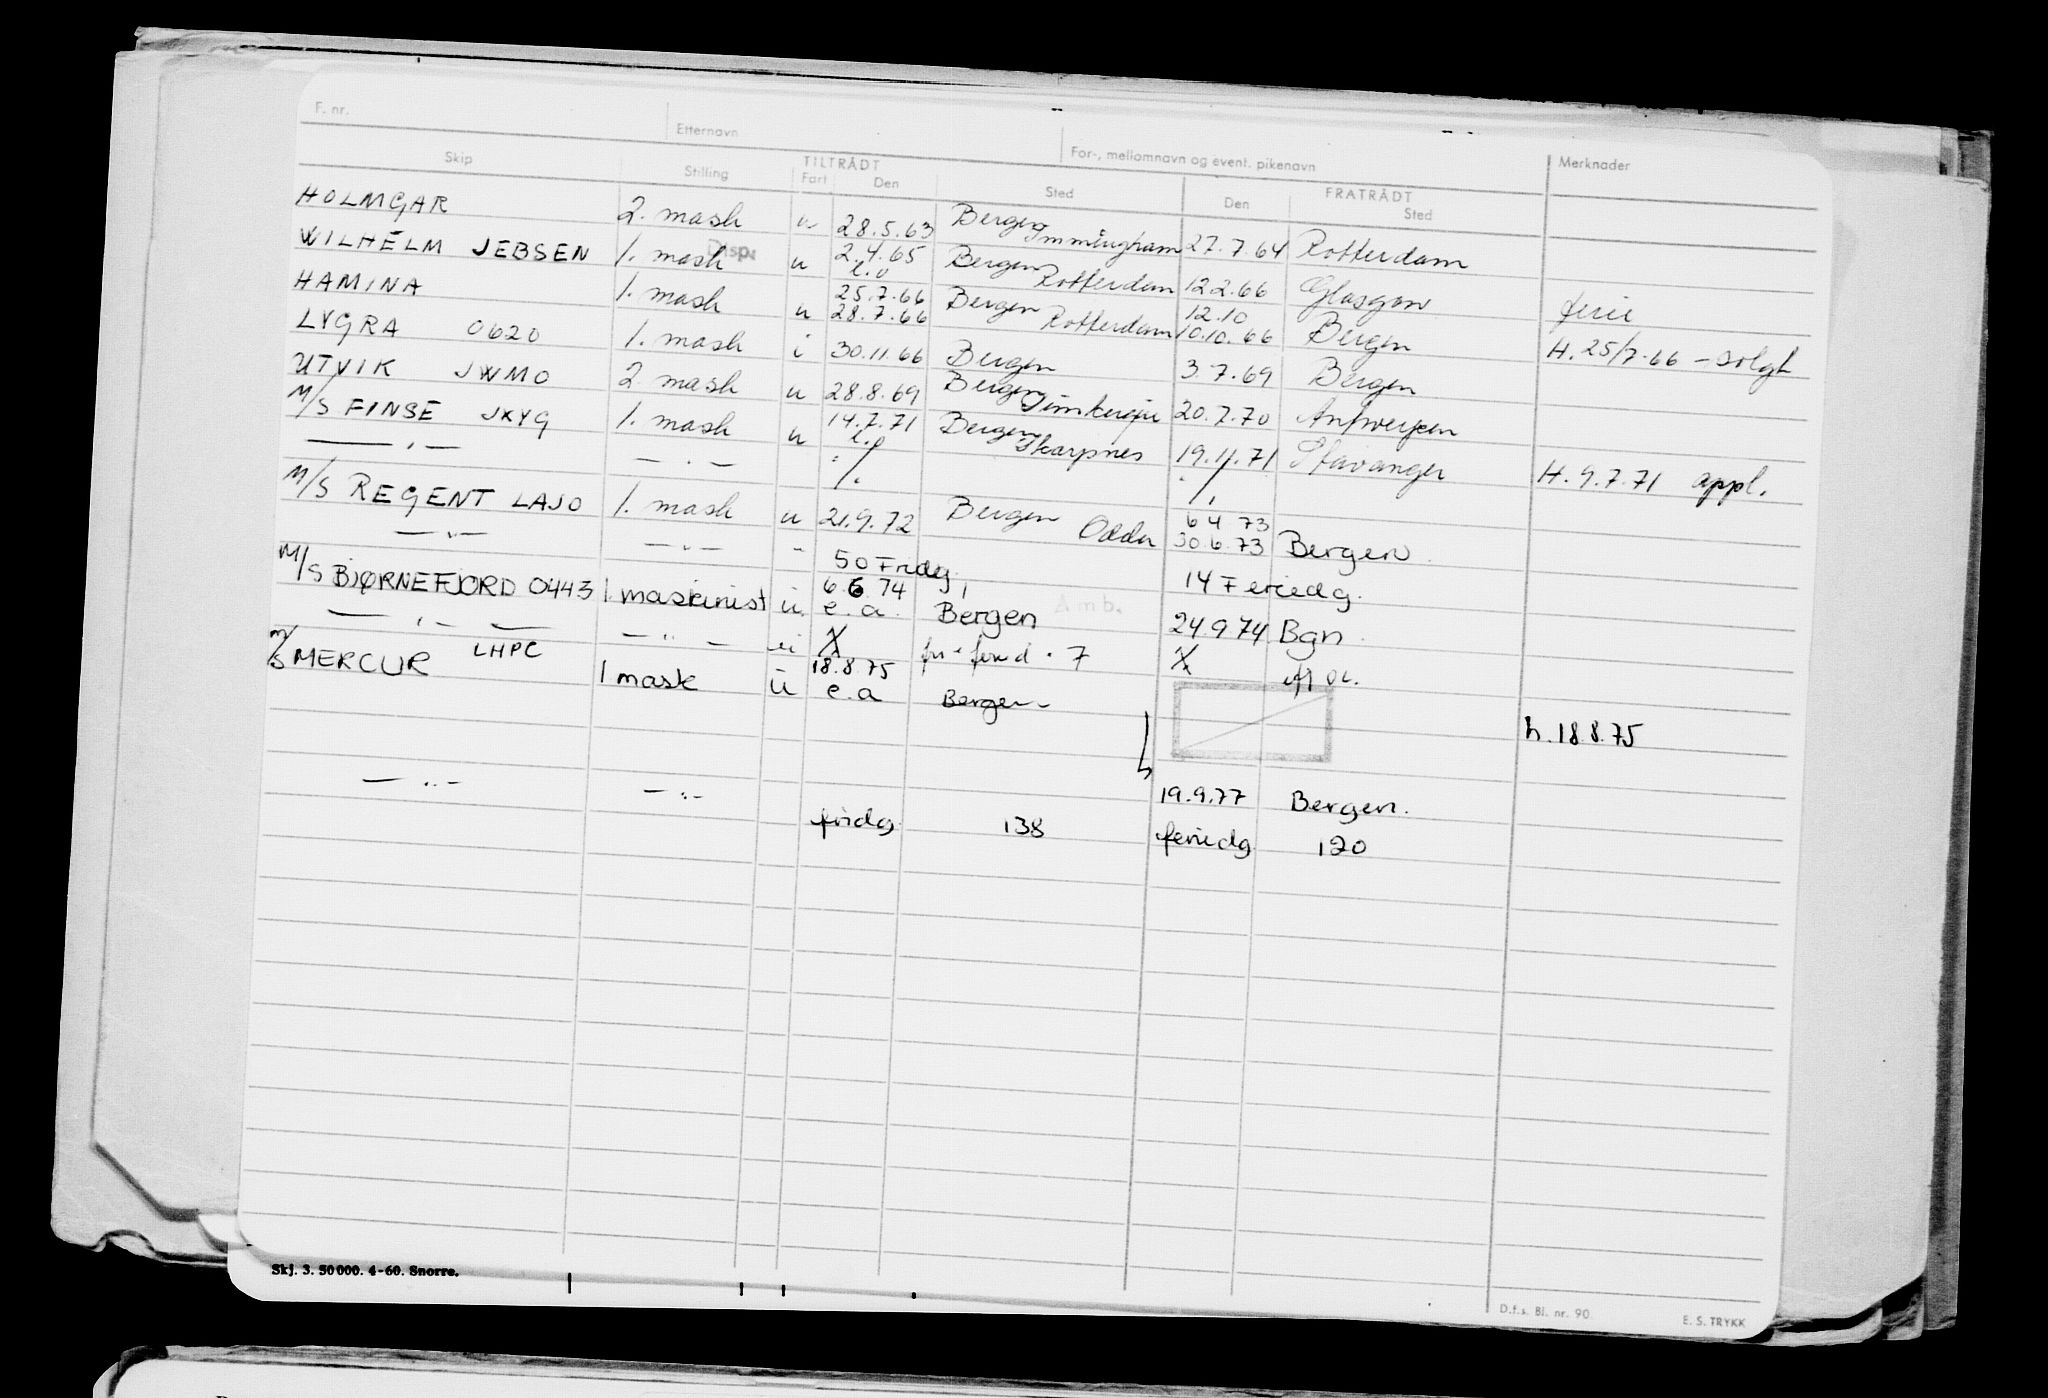 F. nr. Etternavn For-, mellomnavn og event. pikenavn Merknader
Skip Stilling TILTRÅDT Fart Den Sted Den FRATRÅDT Sted
HOLMGAR 2. mask u 28.5.63 Bergen Immingham 27.7.64 Rotterdam
WILHELM JEBSEN 1. mask Disp. u 2.4.65 Bergen Rotterdam 12.2.66 Glasgow ferie
HAMINA 1. mask u 25.7.66 28.7.66 Bergen Rotterdam 12.10 10.10.66 Bergen H. 25/7-66 - solgt
LYGRA 0620 1. mask i 30.11.66 Bergen 3.7.69 Bergen
UTVIK JWMO 2. mask u 28.8.69 Bergen 20.7.70 Antwerpen
M/S FINSE JKYG 1. mask u 14.7.71 Bergen Skarpnes 19.11.71 Stavanger H. 9.7.71 appl.
— " — — " — ./. ./.
M/S REGENT LAJO 1. mask u 21.9.72 Bergen Odda 6 4 73 30.6.73 Bergen
— " — — " — " 50 Fridg. 14 Feriedg.
M/S BJØRNEFJORD 0443 1 maskinist u. 6.6 74 e.a. Bergen Amb. 24.9 74 Bgn.
— " — — " — X X
M/S MERCUR LHPC 1 mask u 18.8.75 e.a Bergen h. 18.8.75
— " — — " — 19.9.77 Bergen.
fridg. 138 feriedg 120
Skj. 3. 50 000. 4-60. Snorre.
D.f.s. Bl. nr. 90. E. S. TRYKK